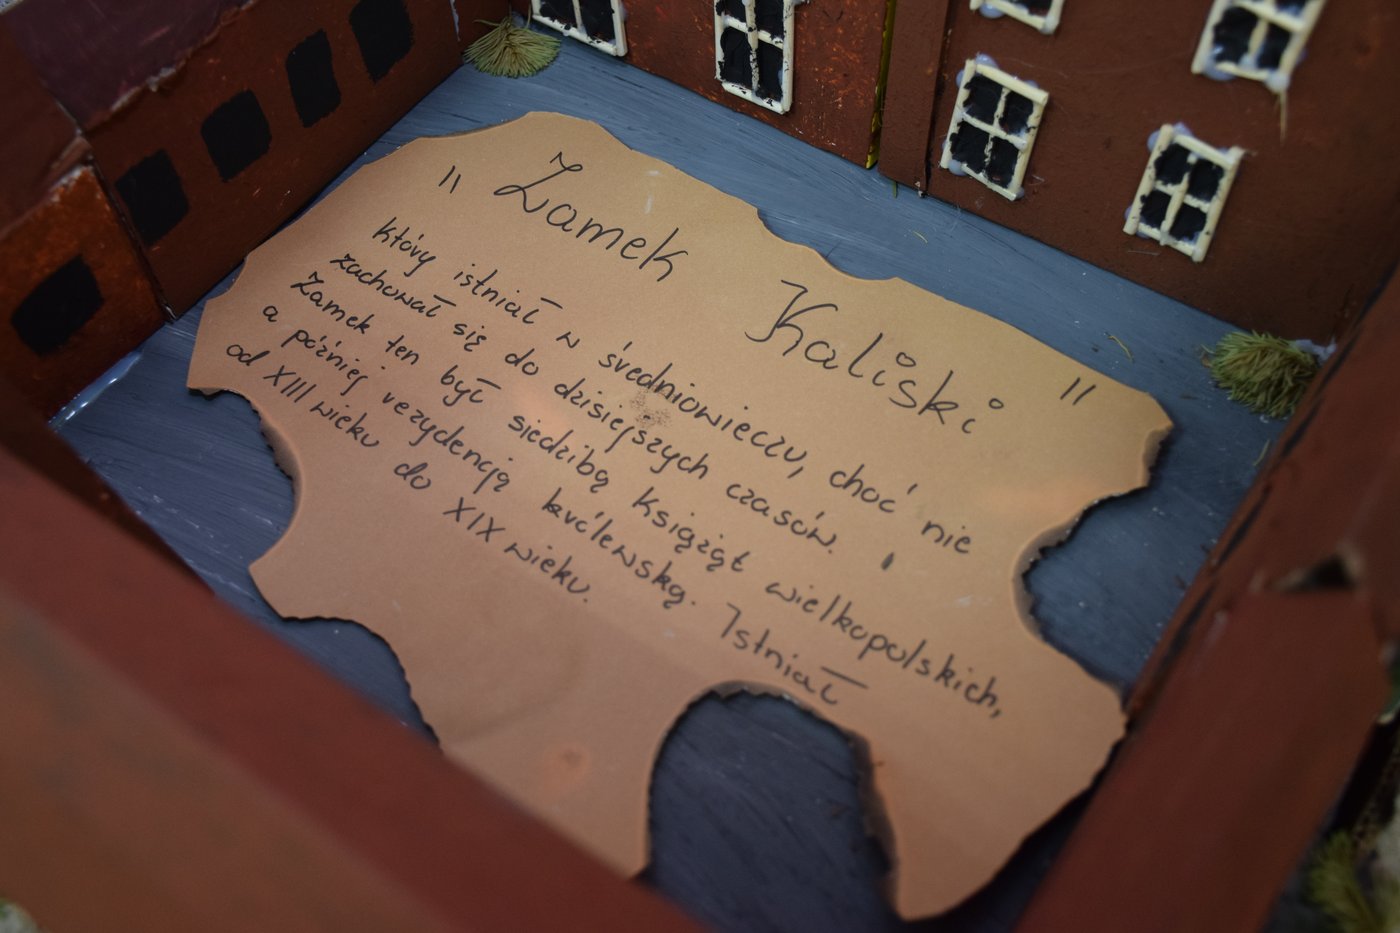 " Zamek Kaliski "
który istniał w średniowieczu, choć nie
zachował się do dzisiejszych czasów.
Zamek ten był siedzibą Książąt wielkopolskich,
a później rezydencją królewską. Istniał
od XIII wieku do XIX wieku.